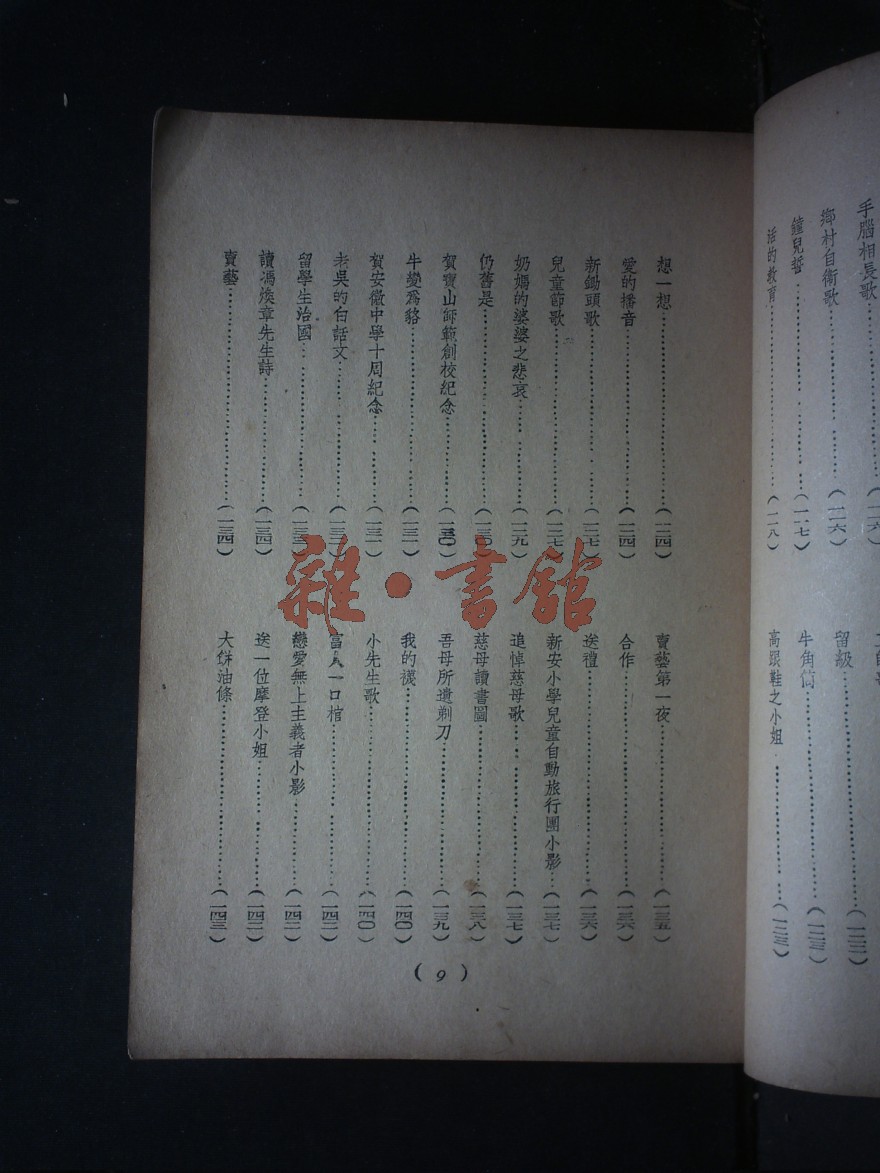 手腦相長歌……(一一六)
鄉村自衛歌……(一一六)
鐘兒誓……(一一七)
活的教育……(一一八)
留級……(一二二)
牛角筒……(一二三)
高跟鞋之小姐……(一二三)
想一想……(一二四)
愛的播音……(一二四)
新鋤頭歌……(一二七)
兒童節歌……(一二七)
奶媽的婆婆之悲哀……(一二九)
仍舊是……(一三〇)
賀寶山師範創校紀念……(一三〇)
牛變爲貉……(一三一)
賀安徽中學十周紀念……(一三一)
老吳的白話文……
留學生治國……
讀馮煥章先生詩……(一三四)
賣藝……(一三四)
賣藝第一夜……(一三五)
合作……(一三六)
送禮……(一三六)
新安小學兒童自動旅行團小影……(一三七)
追悼慈母歌……(一三七)
慈母讀書圖……(一三八)
吾母所遺剃刀……(一三九)
我的襪……(一四〇)
小先生歌……(一四〇)
富人一口棺……(一四二)
戀愛無上主義者小影……(一四二)
送一位摩登小姐……(一四二)
大餅油條……(一四三)
(9)
雜·書館